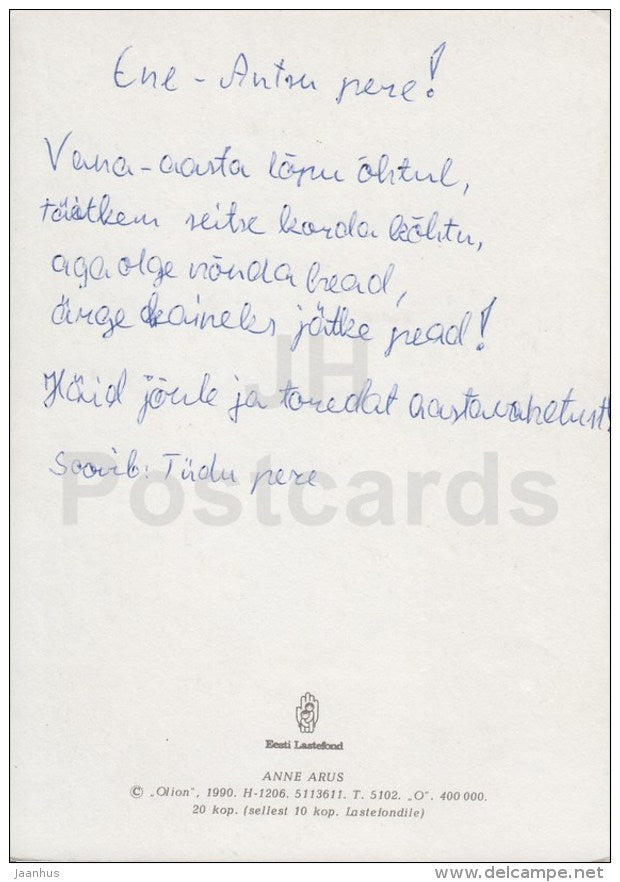 Ene-Antsu pere!
Vana-aasta lõpu õhtul,
täitkem seitse korda kõhtu,
aga olge nõnda head,
ärge kaineks jätke pead!
Häid jõule ja toredat aastavahetust!
Soovib: Tiidu pere
JH
Postcards
Eesti Lastefond
ANNE ARUS
© „Olion", 1990. H-1206. 5113611. T. 5102. „O". 400 000.
20 kop. (sellest 10 kop. Lastefondile)
jaanhus
www.delcampe.net